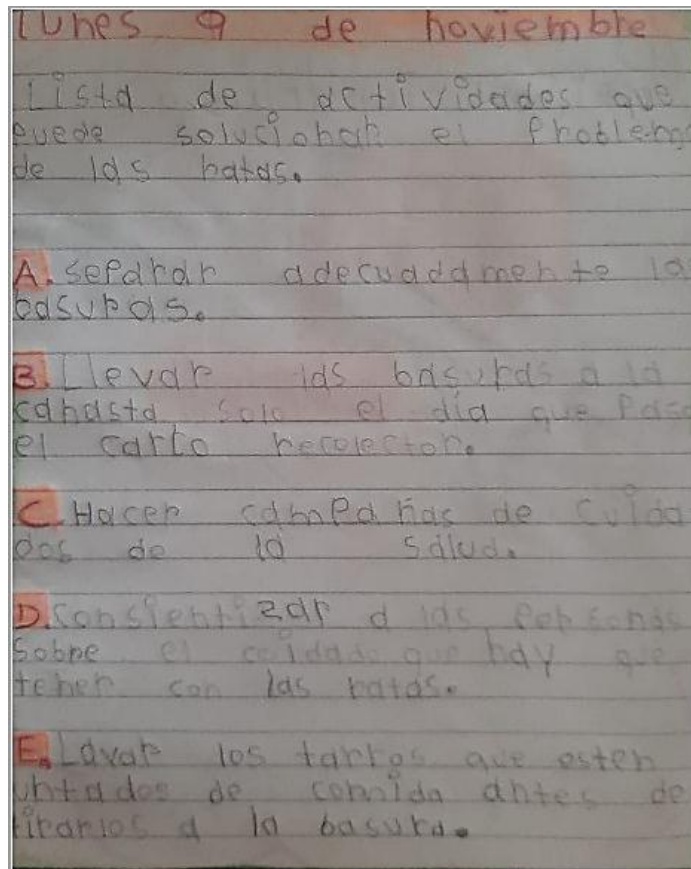 Lunes 9 de noviembre
Lista de actividades que
puede solucionar el problema
de las ratas.
A. separar adecuadamente la
basuras.
B. Llevar las basuras a la
canasta solo el dia que Pasa
el carro recolector.
C. Hacer campañas de cuida
dos de la salud.
D. Consientizar a las personas
sobre el cuidado que hay que
tener con las ratas.
E. Lavar los tarros que esten
untados de comida antes de
tirarlos a la basura.